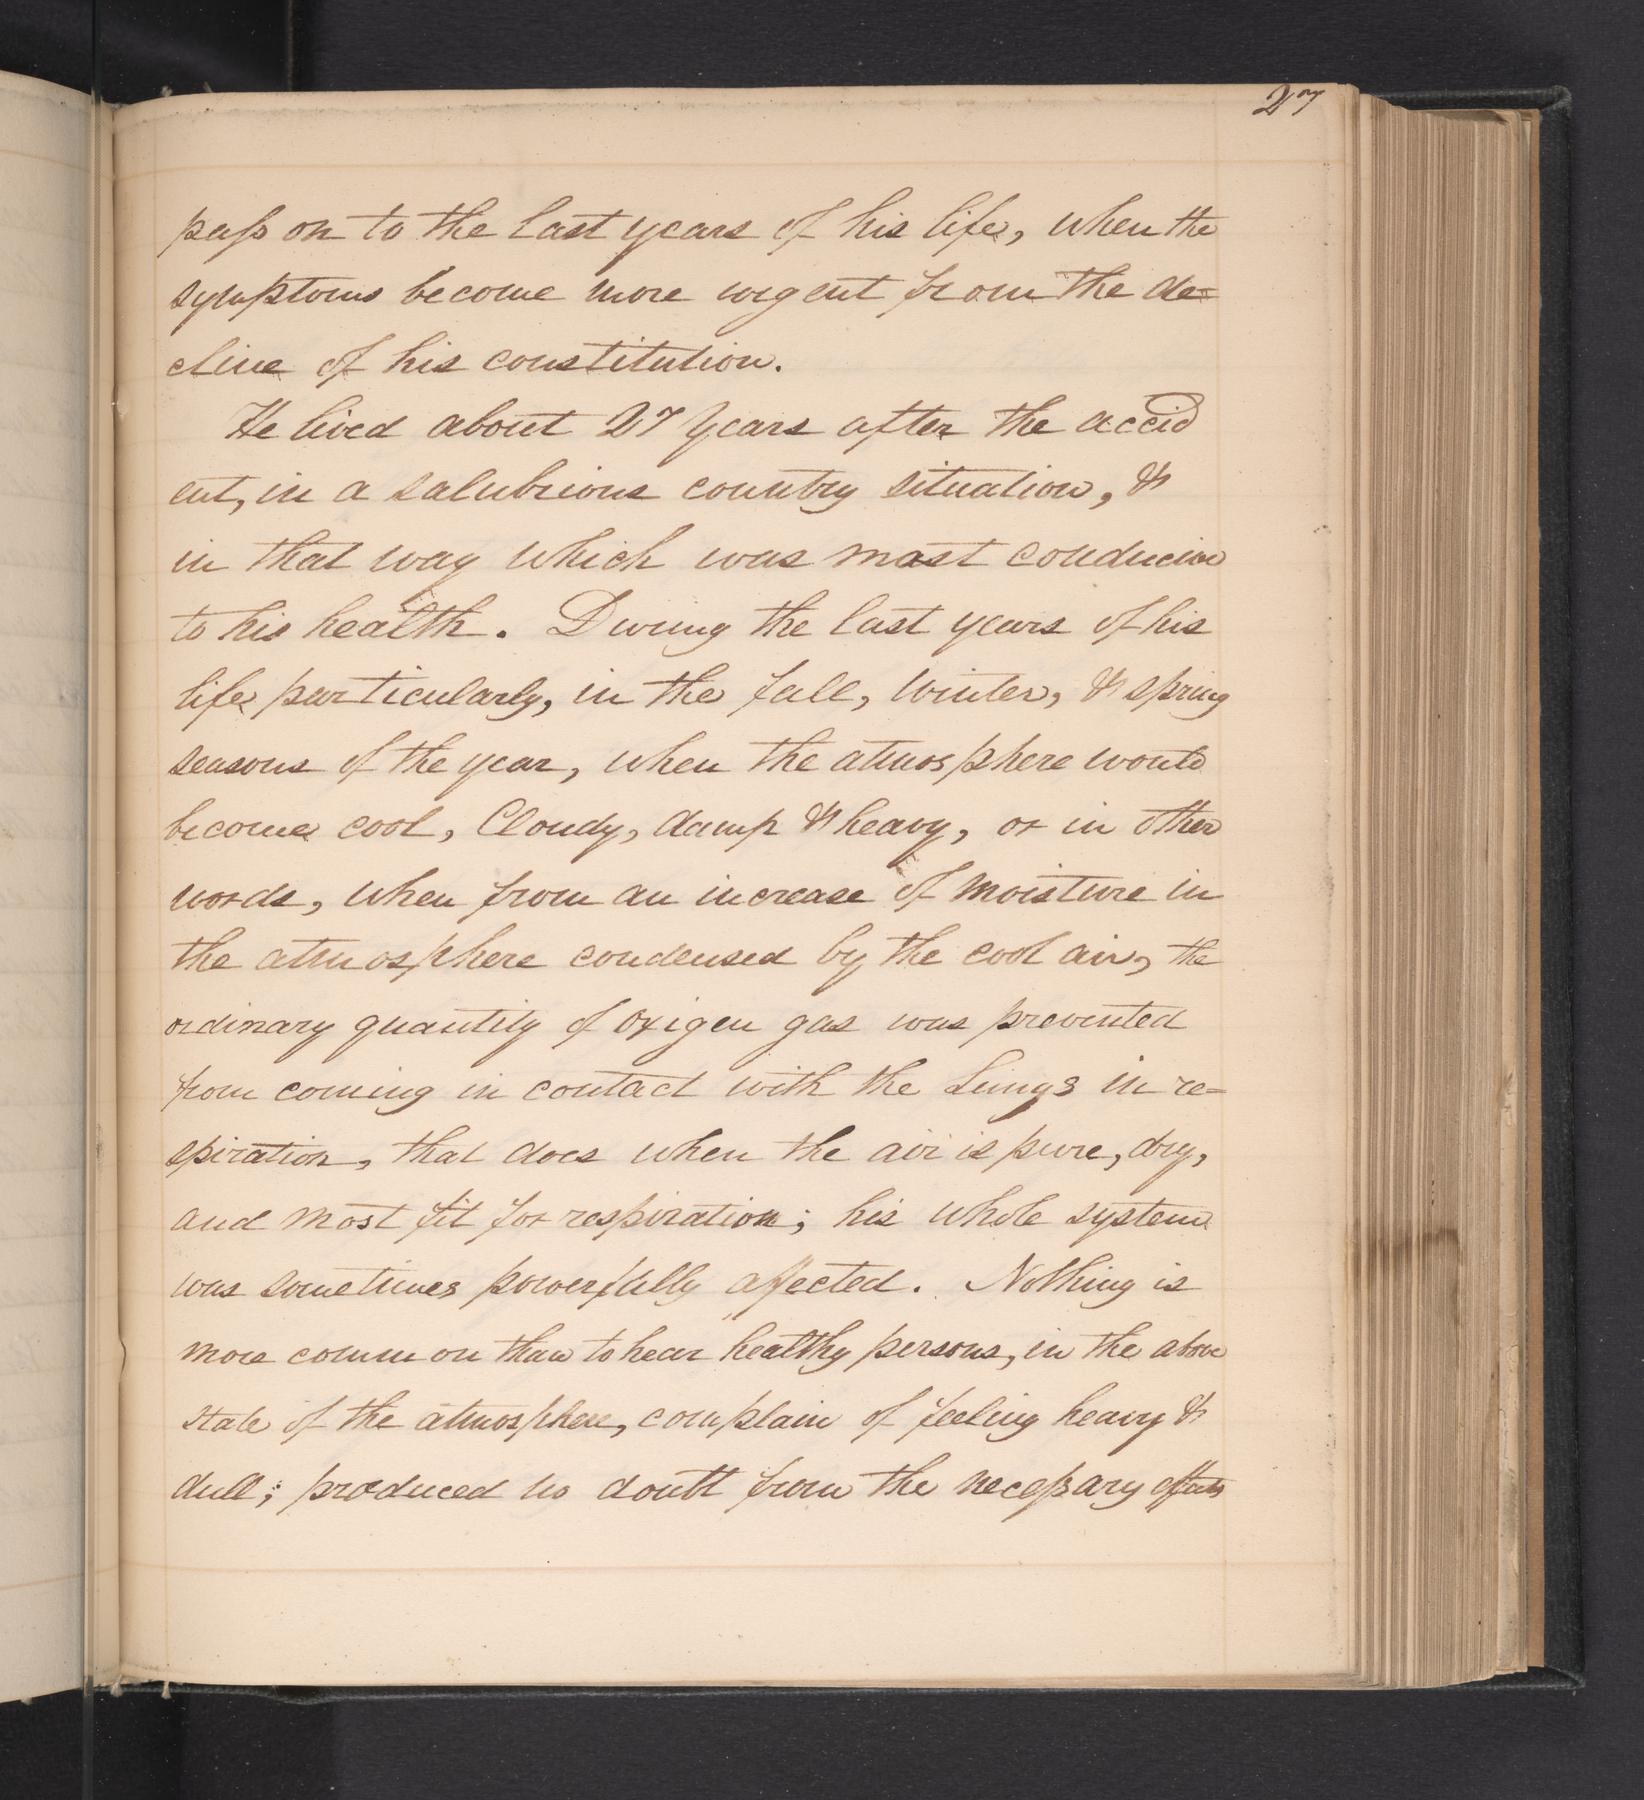 27
paſs on to the last years of his life, when the
symptoms become more urgent from the de=
cline of his constitution.
He lived about 27 Years after the accid
ent, in a salubrious country situation, &
in that way which was most conducive
to his health. During the last years of his
life particularly, in the fall, Winter, & spring
seasons of the year, when the atmosphere would
become cool, Cloudy, damp & heavy, or in other
words, when from an increase of moisture in
the atmosphere condensed by the cool air, the
ordinary quantity of oxigen gas was prevented
from coming in contact with the Lungs in re=
spiration, that does when the air is pure, dry,
and most fit for respiration; his whole system
was sometimes powerfully affected. Nothing is
more common than to hear healthy persons, in the above
state of the atmosphere, complain of feeling heavy &
dull; produced no doubt from the neceſsary effects